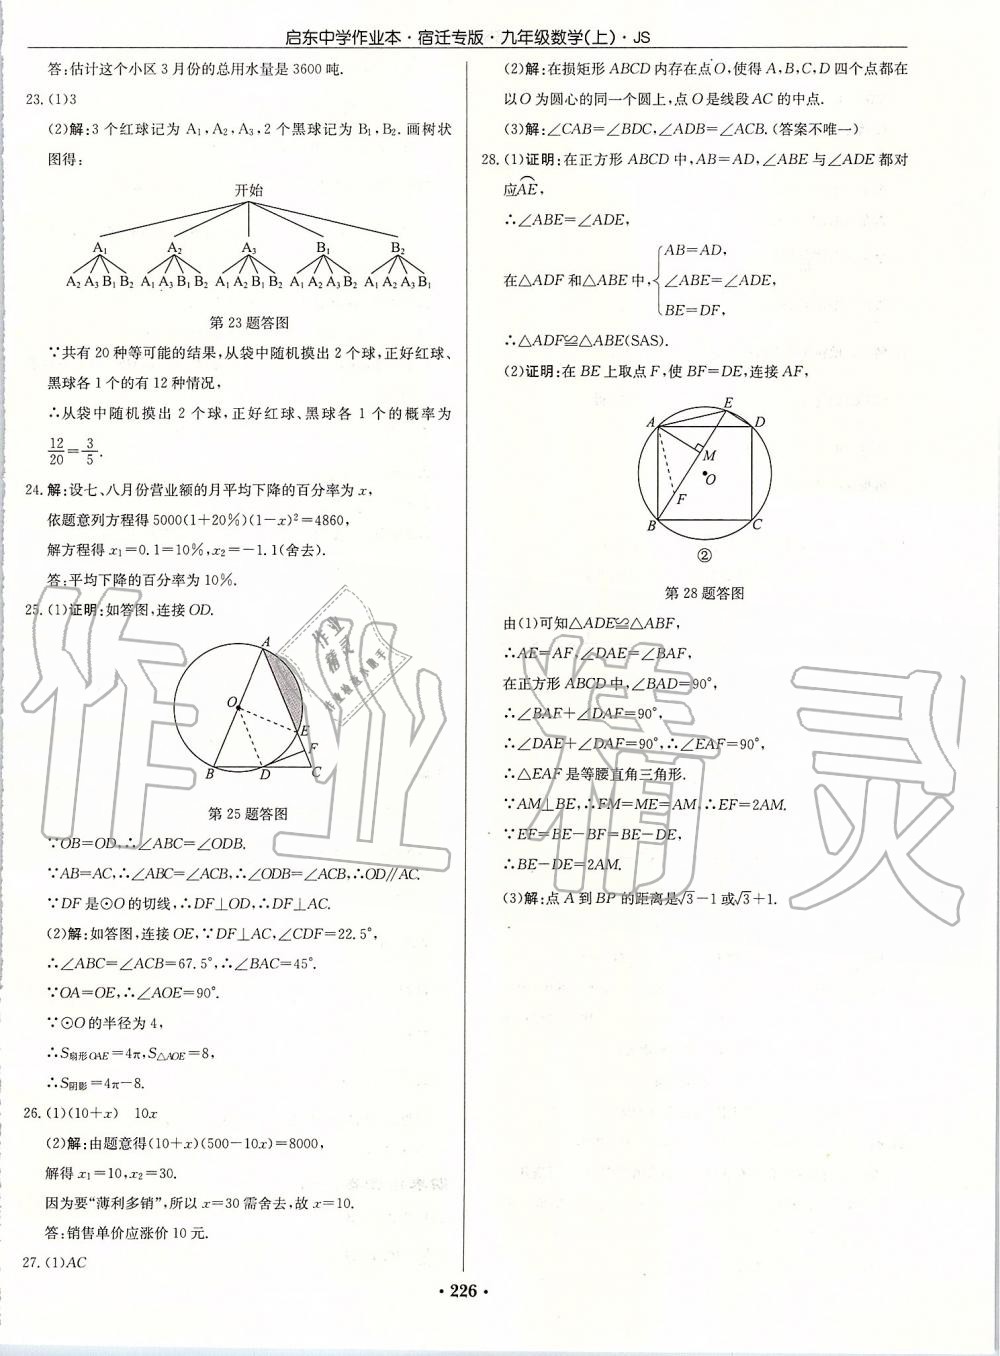 启东中学作业本·宿迁专版·九年级数学(上)·JS
答:估计这个小区3月份的总用水量是3600吨.
23.(1)3
(2)解:3个红球记为A₁,A₂,A₃,2个黑球记为B₁,B₂.画树状
图得:
开始
A₁ A₂ A₃ B₁ B₂
A₂ A₃ B₁ B₂ A₁ A₃ B₁ B₂ A₁ A₂ B₁ B₂ A₁ A₂ A₃ B₂ A₁ A₂ A₃ B₁
第23题答图
∵共有20种等可能的结果,从袋中随机摸出2个球,正好红球、
黑球各1个的有12种情况,
∴从袋中随机摸出2个球,正好红球、黑球各1个的概率为
12/20=3/5.
24.解:设七、八月份营业额的月平均下降的百分率为x,
依题意列方程得5000(1+20%)(1-x)²=4860,
解方程得x₁=0.1=10%,x₂=-1.1(舍去).
答:平均下降的百分率为10%.
25.(1)证明:如答图,连接OD.
A
O
E
F
B D C
第25题答图
∵OB=OD,∴∠ABC=∠ODB.
∵AB=AC,∴∠ABC=∠ACB,∴∠ODB=∠ACB,∴OD∥AC.
∵DF是⊙O的切线,∴DF⊥OD,∴DF⊥AC.
(2)解:如答图,连接OE,∵DF⊥AC,∠CDF=22.5°,
∴∠ABC=∠ACB=67.5°,∴∠BAC=45°.
∵OA=OE,∴∠AOE=90°.
∵⊙O的半径为4,
∴S扇形OAE=4π,S△AOE=8,
∴S阴影=4π-8.
26.(1)(10+x) 10x
(2)解:由题意得(10+x)(500-10x)=8000,
解得x₁=10,x₂=30.
因为要“薄利多销”,所以x=30需舍去,故x=10.
答:销售单价应涨价10元.
27.(1)AC
(2)解:在损矩形ABCD内存在点O,使得A,B,C,D四个点都在
以O为圆心的同一个圆上,点O是线段AC的中点.
(3)解:∠CAB=∠BDC,∠ADB=∠ACB.(答案不唯一)
28.(1)证明:在正方形ABCD中,AB=AD,∠ABE与∠ADE都对
应AE⌒,
∴∠ABE=∠ADE,
AB=AD,
在△ADF和△ABE中,{∠ABE=∠ADE,
BE=DF,
∴△ADF≌△ABE(SAS).
(2)证明:在BE上取点F,使BF=DE,连接AF,
E
A D
M
O
F
B C
②
第28题答图
由(1)可知△ADE≌△ABF,
∴AE=AF,∠DAE=∠BAF,
在正方形ABCD中,∠BAD=90°,
∴∠BAF+∠DAF=90°,
∴∠DAE+∠DAF=90°,∴∠EAF=90°,
∴△EAF是等腰直角三角形.
∵AM⊥BE,∴FM=ME=AM,∴EF=2AM.
∵EF=BE-BF=BE-DE,
∴BE-DE=2AM.
(3)解:点A到BP的距离是√3-1或√3+1.
·226·
作业精灵
作业精灵